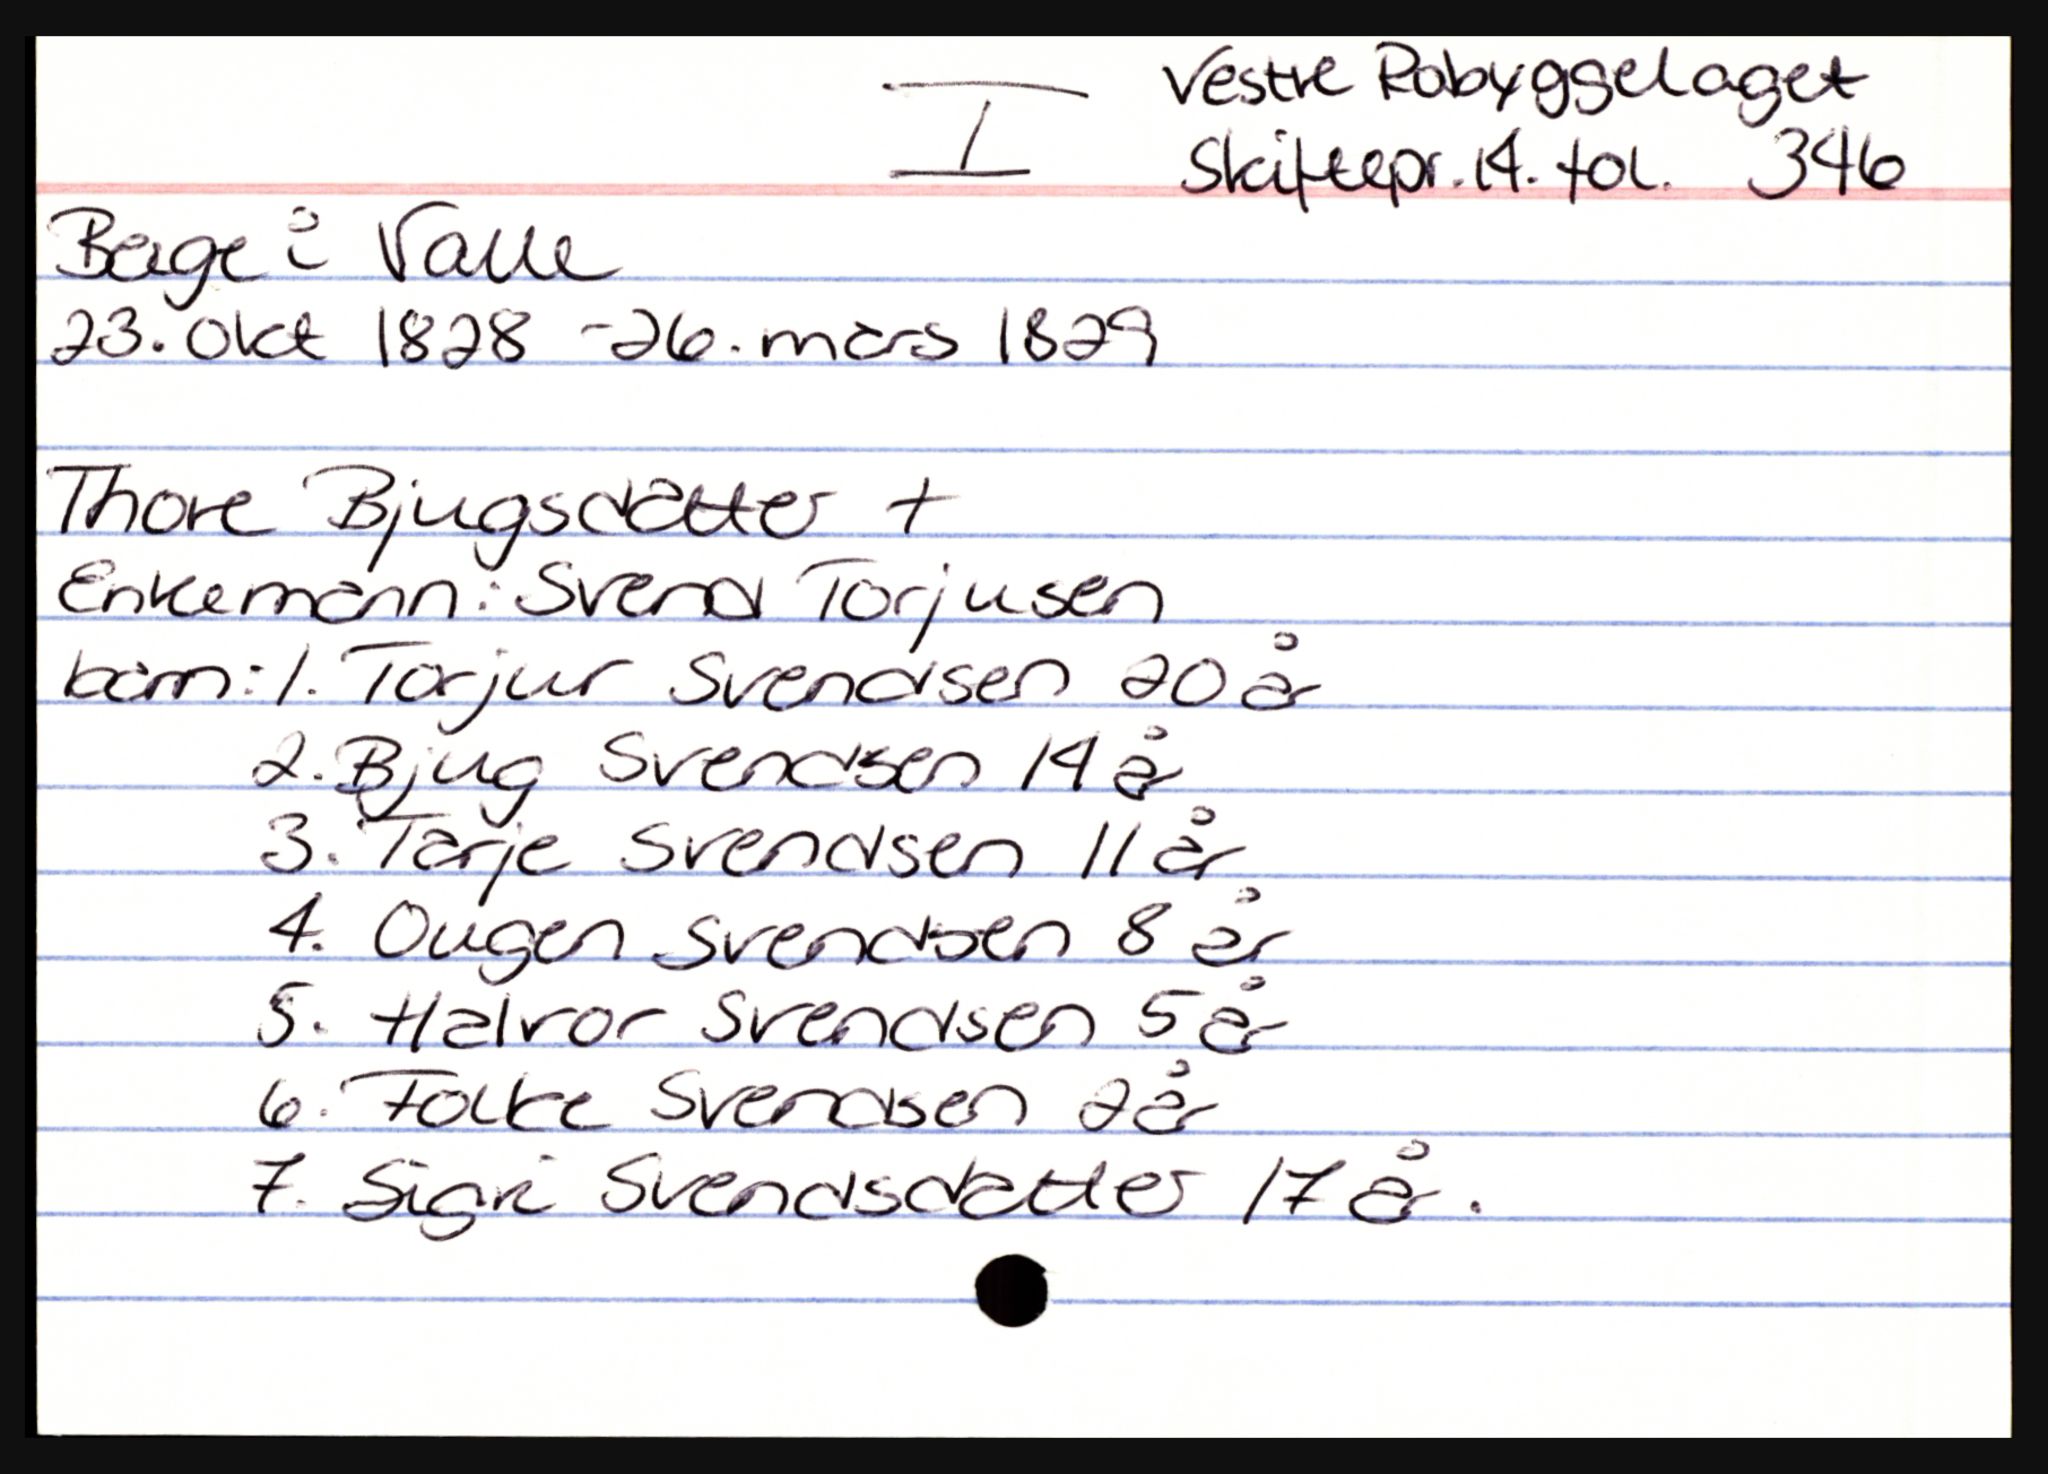 I
Vestre Robyggelaget
Skiftepr. 14. fol. 346
Berge i Valle
23. okt 1828 - 26. mars 1829
Thore Bjugsdatter +
Enkemann: Svend Torjusen
barn: 1. Torjur Svendsen 20 år
2. Bjug Svendsen 14 år
3. Tarje Svendsen 11 år
4. Ougen Svendsen 8 år
5. Halvor Svendsen 5 år
6. Folke Svendsen 2 år
7. Sigri Svendsdatter 17 år.